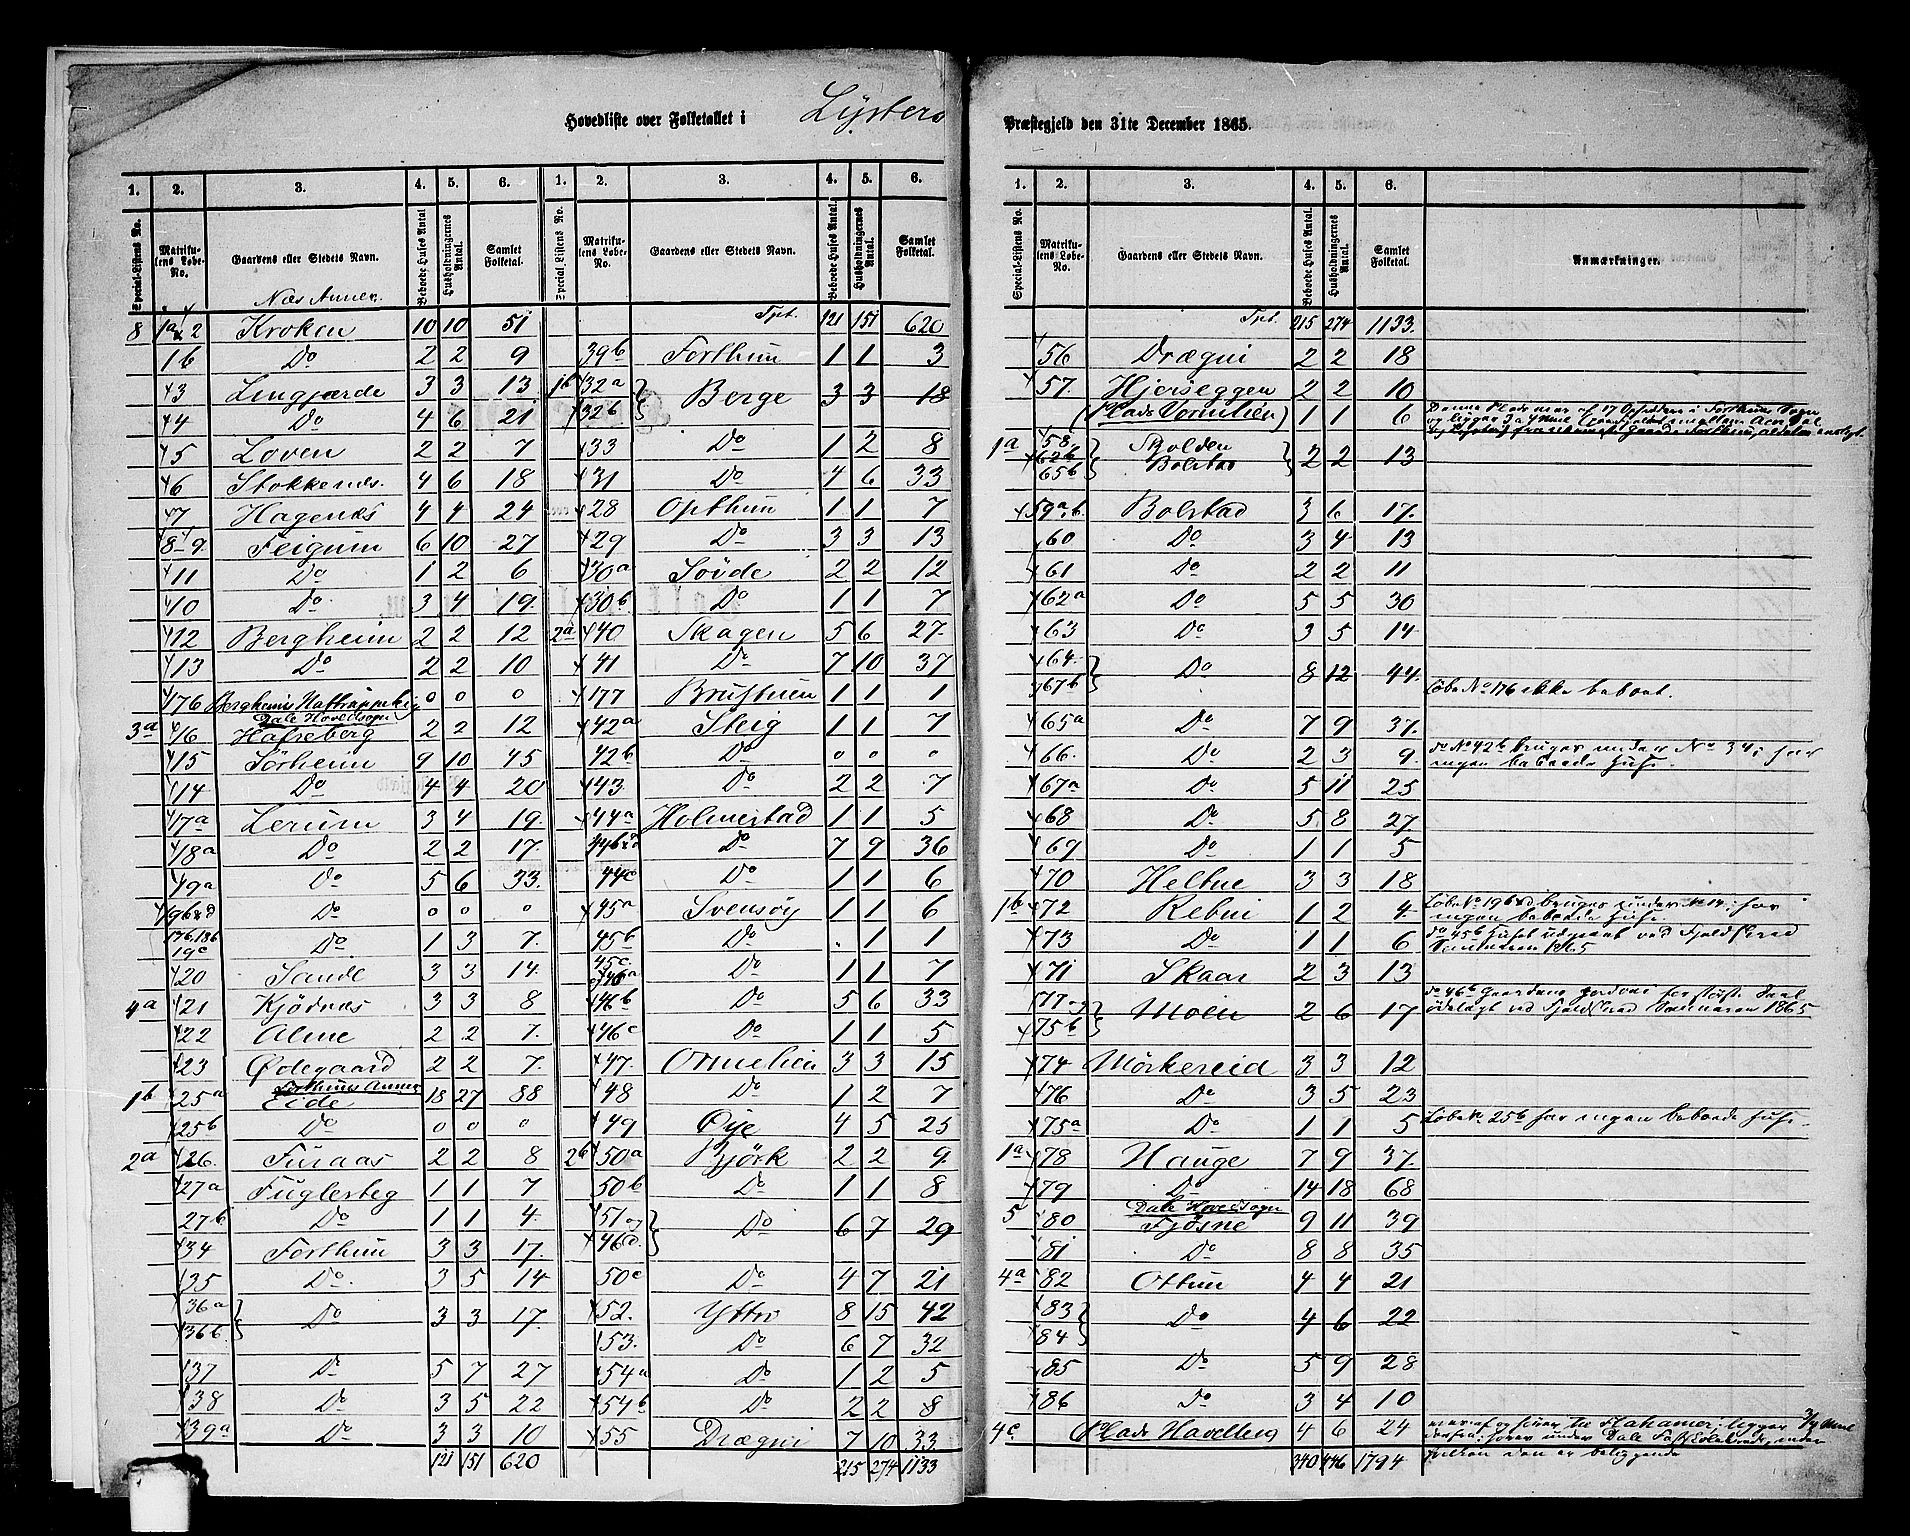 Hovedliste over Folketallet i Lysters Præstegjeld den 31te December 1865.
1. 2. 3. 4. 5. 6. 1. 2. 3. 4. 5. 6.
Special-Listens No. Matrikulens Løbe-No. Gaardens eller Stedets Navn. Beboede Huses Antal Husholdningernes Antal. Samlet Folketal.
Næs Annex.
8 1a & 2 Kroken 10 10 51
1b Do 2 2 9
3 Lingjærde 3 3 13
4 Do 4 6 21
5 Loven 2 2 7
6 Stokkenæs 4 6 18
7 Hagenæs 4 4 24
8-9 Feigum 6 10 27
11 Do 1 2 6
10 Do 3 4 19
12 Bergheim 2 2 12
13 Do 2 2 10
176 Bergheims 0 0 0
Dale Hovedsogn
3a 16 Hafreberg 2 2 12
15 Sørheim 9 10 45
14 Do 4 4 20
17a Lerum 3 4 19
18a Do 2 2 17
19a Do 5 6 33
19b&d Do 0 0 0
17b, 18b 19c Do 1 3 7
20 Sande 3 3 14
4a 21 Kjødnæs 3 3 8
22 Alme 2 2 7
23 Ødegaard 2 2 7
Forthuns Annex
1b 25a Eide 18 27 88
25b Do 0 0 0
2a 26 Furaas 2 2 8
27a Fuglesteg 1 1 7
27b Do 1 1 4
34 Forthun 3 3 17
35 Do 3 5 14
36a 36b Do 3 3 17
37 Do 5 7 27
38 Do 3 5 22
39a Do 3 3 10
121 151 620
Special-Listens No. Matrikulens Løbe-No. Gaardens eller Stedets Navn. Beboede Huses Antal. Husholdningernes Antal. Samlet Folketal.
Trt. 121 151 620
39b Forthun 1 1 3
1b 32a 32b Berge 3 3 18
33 Do 1 2 8
31 Do 4 6 33
28 Opthun 1 1 7
29 Do 3 3 13
30a Søvde 2 2 12
30b Do 1 1 7
2a 40 Skagen 5 6 27
41 Do 7 10 37
177 1 1 1
42a Steig 1 1 7
42b Do 0 0 0
43 Do 2 2 7
44a Holmestad 1 1 5
44b&d Do 7 9 36
44c Do 1 1 6
45a Svensøy 1 1 6
45b Do 1 1
45c 46a Do 1 1 7
46b Do 5 6 33
46c Do 1 1 5
47 Ormelien 3 3 15
48 Do 1 2 7
49 Øye 4 5 25
2b 50a Bjørk 2 2 9
50b Do 1 1 8
51 og 46d Do 6 7 29
50c Do 4 7 21
52 Yttri 8 15 42
53 Do 6 7 32
54a Do 1 2 5
54b Do 2 2 8
55 Drægni 7 10 33
215 274 1133
1. 2. 3. 4. 5. 6.
Special-Listens No. Matrikulens Løbe-No. Gaardens eller Stedets Navn. Beboede Huses Antal. Husholdningernes Antal. Samlet Folketal. Anmærkninger.
Trt. 215 274 1133
56 Drægni 2 2 18
57 Hjerseggen 2 2 10
(Plads 1 1 6
1a 58 62b 65b Skjolden Bolstad 2 2 13
59a.b. Bolstad 3 6 17
60 Do 3 4 13
61 Do 2 2 11
62a Do 5 5 30
63 Do 3 5 14
64 67b Do 8 12 44
Løbe No 176 ikke beboet.
65a Do 7 9 37
66 Do 2 3 9 do No 42b bruges under No 34; har
ingen beboede Huse.
67a Do 5 11 25
68 Do 5 8 27
69 Do 1 1 5
70 Heltne 3 3 18
1b 72 Rebni 1 2 4 Løbe No 19b&d bruges under No 14; har
ingen beboede Huse.
73 Do 1 1 6 do 45b Huset udgaaet ved Fjeldskred
71 Skaar 2 3 13
77 og 75b Moen 2 6 17 do 46b Gaardens
ødelagt ved Fjeldskred 1865
74 Mørkereid 3 3 12
76 Do 3 5 23
75a Do 1 1 5 Løbe No 25b har ingen beboede Huse.
1a 78 Hauge 7 9 37
79 Do 14 18 68
Dale Hovedsogn
5 80 Fjøsne 9 11 39
81 Do 8 8 35
4a 82 Ottum 4 4 21
83 84 Do 4 6 22
85 Do 5 9 28
86 Do 3 4 10
4c Plads 4 6 24
340 446 1794